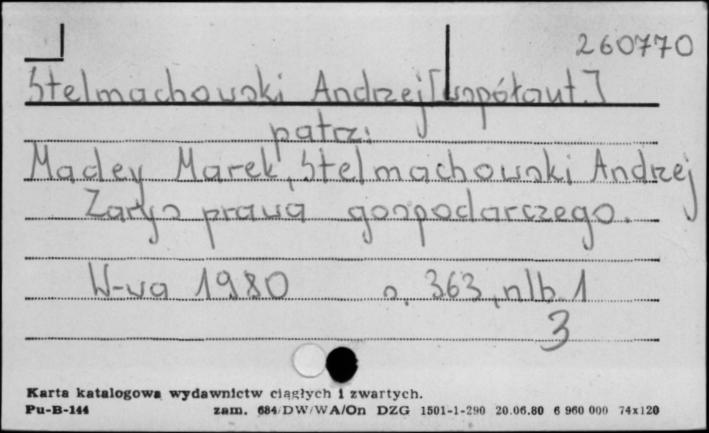 260770
Stelmachowski Andrzej [współaut.]
patrz:
Madey Marek, Stelmachowski Andrzej
Zarys prawa gospodarczego.
W-wa 1980 s. 363, nlb. 1
3
Karta katalogowa wydawnictw ciągłych i zwartych.
Pu-B-144 zam. 684/DW/WA/On DZG 1501-1-290 20.06.80 6 960 000 74x120